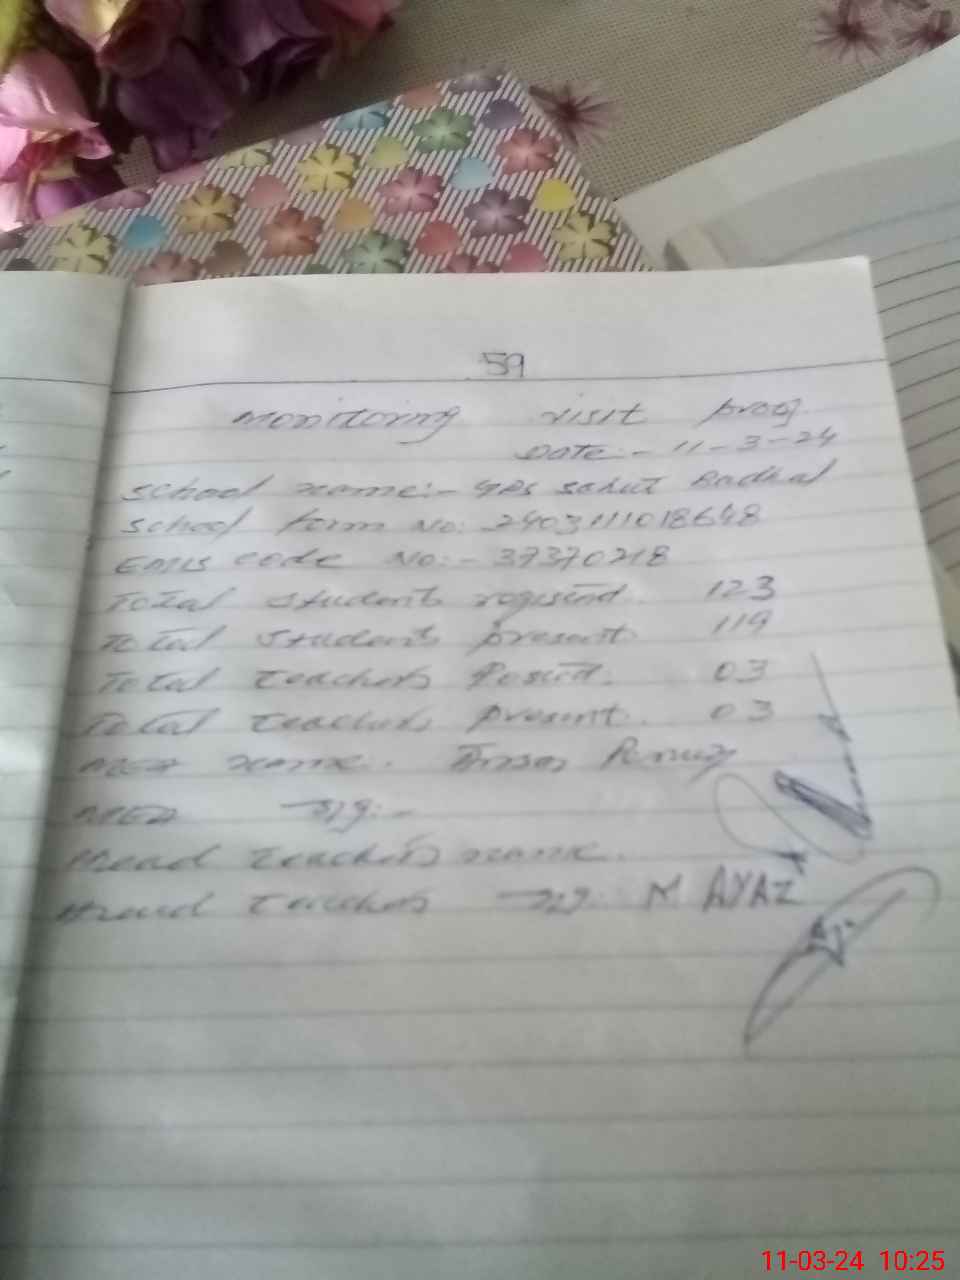 59
Monitoring visit proof
Date:- 11-3-24
School name:- GPS
School form No: 2403111018648
EMIS code No:- 37370218
Total students 123
Total students present 119
Total teachers 03
Total teachers present. 03
name.
sig:-
Head teachers name.
Head teachers sig: M AYAZ
11-03-24 10:25